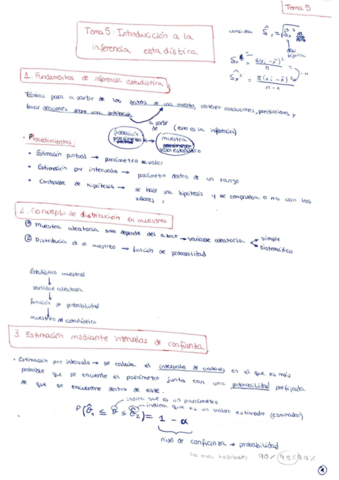 Tema 5
Tema 5: Introducción a la
inferencia estadística
1. Fundamentos de inferencia estadística
Técnicas para a partir de los datos de una muestra obtener conclusiones, predicciones y
tomar decisiones sobre una población
a partir
de (esto es la inferencia)
población
muestra
• Procedimientos:
• Estimación puntual → parámetro = valor
• Estimación por intervalos → parámetro dentro de un rango
• Contraste de hipótesis → se hace una hipótesis y se comprueba o no con los
valores
2. Concepto de distribución en muestreo
① Muestra aleatoria → depende del azar → variable aleatoria
simple
sistemático
② Distribución en el muestreo → función de probabilidad
Estadístico muestral
↓
variable aleatoria
↓
función de probabilidad
↓
muestreo de estadístico
3. Estimación mediante intervalos de confianza
• Estimación por intervalo → se calcula el intervalo de valores en el que es más
probable que se encuentre el parámetro junto con una probabilidad prefijada
de que se encuentre dentro de este.
indica que es un parámetro
indica que es un valor estimado (estimador)
= 1 - α
nivel de confianza → probabilidad
los más habituales 90% 95% 99%